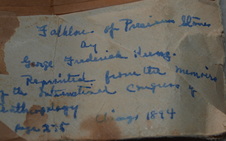 Folklore of Precious Stones
by
George Frederick Kunz.
Reprinted from the Memoirs
of the International Congress of
Anthropology
Chicago 1894
Page 2